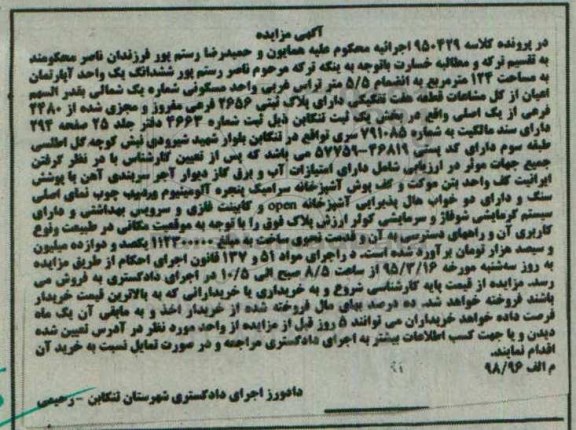 آگهی مزایده
در پرونده کلاسه ۹۵۰۴۲۹ اجرائیه محکوم علیه همایون و حمیدرضا رستم پور فرزندان ناصر محکومند
به تقسیم ترکه و مطالبه خسارت باتوجه به ینکه ترکه مرحوم ناصر رستم پور ششدانگ یک واحد آپارتمان
به مساحت ۱۲۴ مترمربع به انضمام ۵/۵ متر تراس غربی واحد مسکونی شماره یک شمالی بقدر السهم
اعیان از کل مشاعات قطعه هفت تفکیکی دارای پلاک ثبتی ۲۶۵۶ فرعی مفروز و مجزی شده از ۲۴۸۰
فرعی از یک اصلی واقع در بخش یک ثبت تنکابن ذیل ثبت شماره ۴۶۶۳ دفتر جلد ۲۵ صفحه ۲۹۴
دارای سند مالکیت به شماره ۷۹۱۰۸۵ سری تواقع در تنکابن بلوار شهید شیرودی نبش کوچه گل اطلسی
طبقه سوم دارای کد پستی ۴۶۸۱۹-۵۷۷۵۹ می باشد که پس از تعیین کارشناس با در نظر گرفتن
جمیع جهات موثر در ارزیابی شامل دارای امتیازات آب و برق گاز دیوار آجر سربندی آهن با پوشش
ایرانیت کف واحد بتن موکت و کف پوش آشپزخانه سرامیک پنجره آلومینیوم چوب نمای اصلی
سنگ و دارای دو خواب هال پذیرایی آشپزخانه open و کابینت فلزی و سرویس بهداشتی و دارای
سیستم گرمایشی شوفاژ و سرمایشی کولر ارزش پلاک فوق را با توجه به موقعیت مکانی در طبیعت ونوع
کاربری آن و راههای دسترسی به آن و قدمت نحوی ساخت به مبلغ ۱۱۲۳۰۰۰۰۰۰ یکصد و دوازده میلیون
و سیصد هزار تومان برآورد شده است. د راجرای مواد ۵۱ و ۱۳۷ قانون اجرای احکام از طریق مزایده
به روز سه‌شنبه مورخه ۹۵/۳/۱۶ از ساعت ۸/۵ صبح الی ۱۰/۵ در اجرای دادگستری به فروش می
رسد. مزایده از قیمت پایه کارشناسی شروع و به خریداری یا خریدارانی که به بالاترین قیمت خریدار
باشند فروخته خواهد شد. ده درصد بهای مال فروخته شده از خریدار اخذ و به مابقی آن یک ماه
فرصت داده خواهد خریداران می توانند ۵ روز قبل از مزایده از واحد مورد نظر در آدرس تعیین شده
دیدن و یا جهت کسب اطلاعات بیشتر به اجرای دادگستری مراجعه و در صورت تمایل نسبت به خرید آن
اقدام نمایند.
م الف ۹۸/۹۶
دادورز اجرای دادگستری شهرستان تنکابن - رحیمی